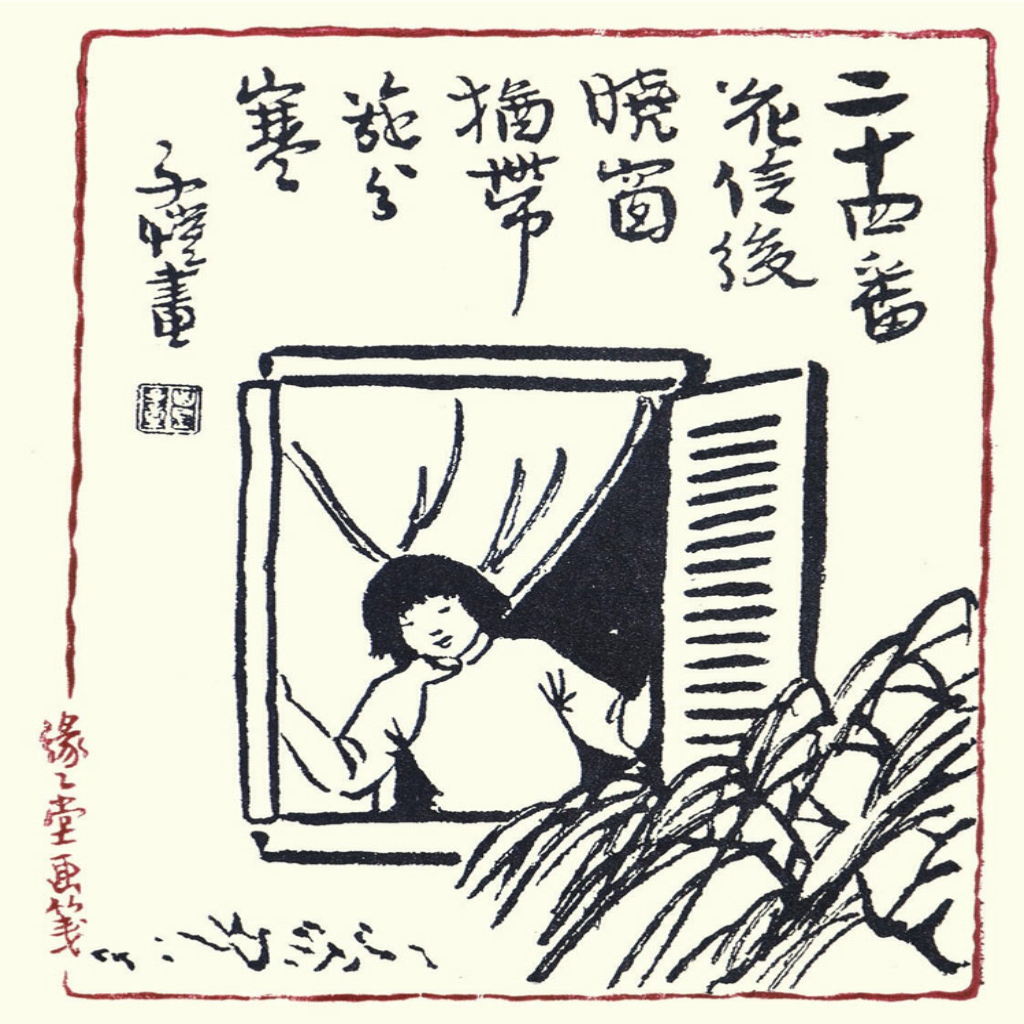 二十四番
花信後
曉窗
猶帶
幾分
寒
子愷畫
緣々堂画笺